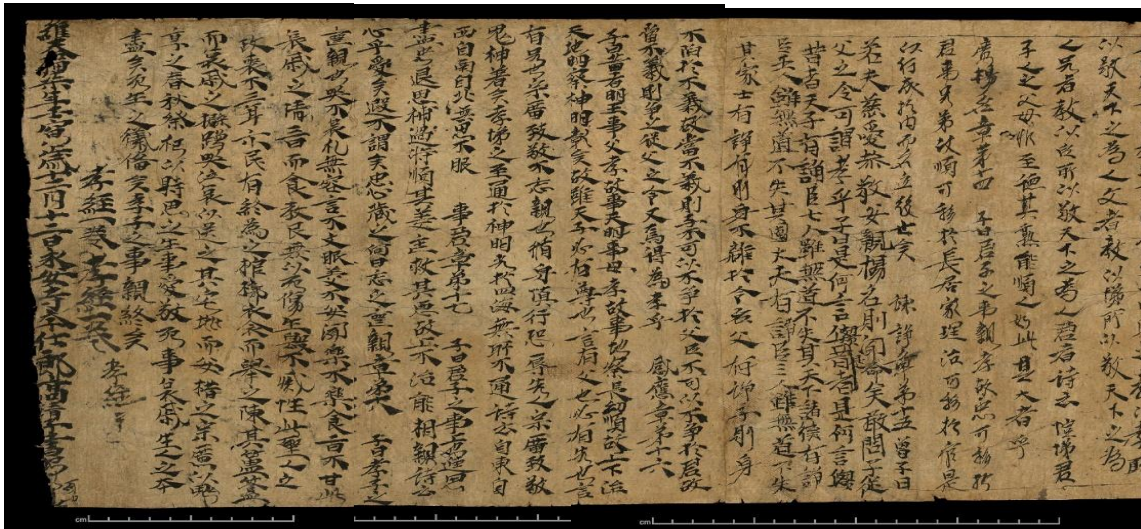 以敬天下之為人父者教以悌所以敬天下之為
人兄者教以臣所以敬天下之為人君者詩云愷悌君
子人之父母非至德其孰能順人如此其大者乎
廣揚名章第十四 子曰君子之事親孝故忠可移於
君事兄弟故順可移於長居家理治可移於官是
以行成於内而名立後世矣 諫諍章第十五 曾子曰
若夫慈愛恭敬安親楊名則聞命矣敢問子從
父之令可謂孝乎子曰是何言與是何言與
昔者天子有諍臣七人雖無道不失其天下諸侯有諍
臣五人雖無道不失其國大夫有諍臣三人雖無道不失
其家士有諍友則身不離於令名父有諍子則身
不陷於不義故當不義則子不可以不爭於父臣不可以不爭於君故
當不義則爭之從父之令又焉得為孝乎 感應章第十六
子曰昔者明王事父孝故事天明事母孝故事地察長幼順故上下治
天地明察神明彰矣故雖天子必有尊也言有父也必有先也言
有兄也宗廟致敬不忘親也脩身慎行恐辱先也宗廟致敬
鬼神著矣孝悌之至通於神明光於四海無所不通詩云自東自
西自南自北無思不服 事君章第十七 子曰君子之事上進思
盡忠退思補過將順其美匡救其惡故上下治能相親詩云
心乎愛矣遐不謂矣忠心藏之何日忘之 喪親章第十八 子曰孝子之
喪親也哭不哀礼無容言不文服美不安聞樂不樂食旨不甘此
哀戚之情三日而食教民無以死傷生毀不滅性此聖人之
政喪不三年示民有終為之棺槨衣衾而舉之陳其簠簋
而哀戚之擗踊哭泣哀以送之卜其宅兆而安措之宗廟以鬼
享之春秋祭祀以時思之生事愛敬死事哀戚生之本
盡矣死生之儀備矣孝子之事親終矣
孝經一卷 孝經一卷 孝經一
維天福柒年壬寅歲十二月十二日永安寺學仕郎高清子書寫
cm
cm
cm